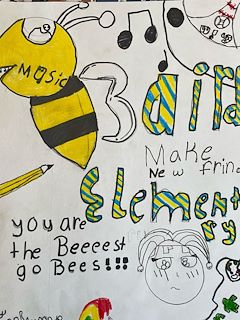 MUSic
Make
New frin
Element
ry
you are
the Beeeest
go Bees!!!